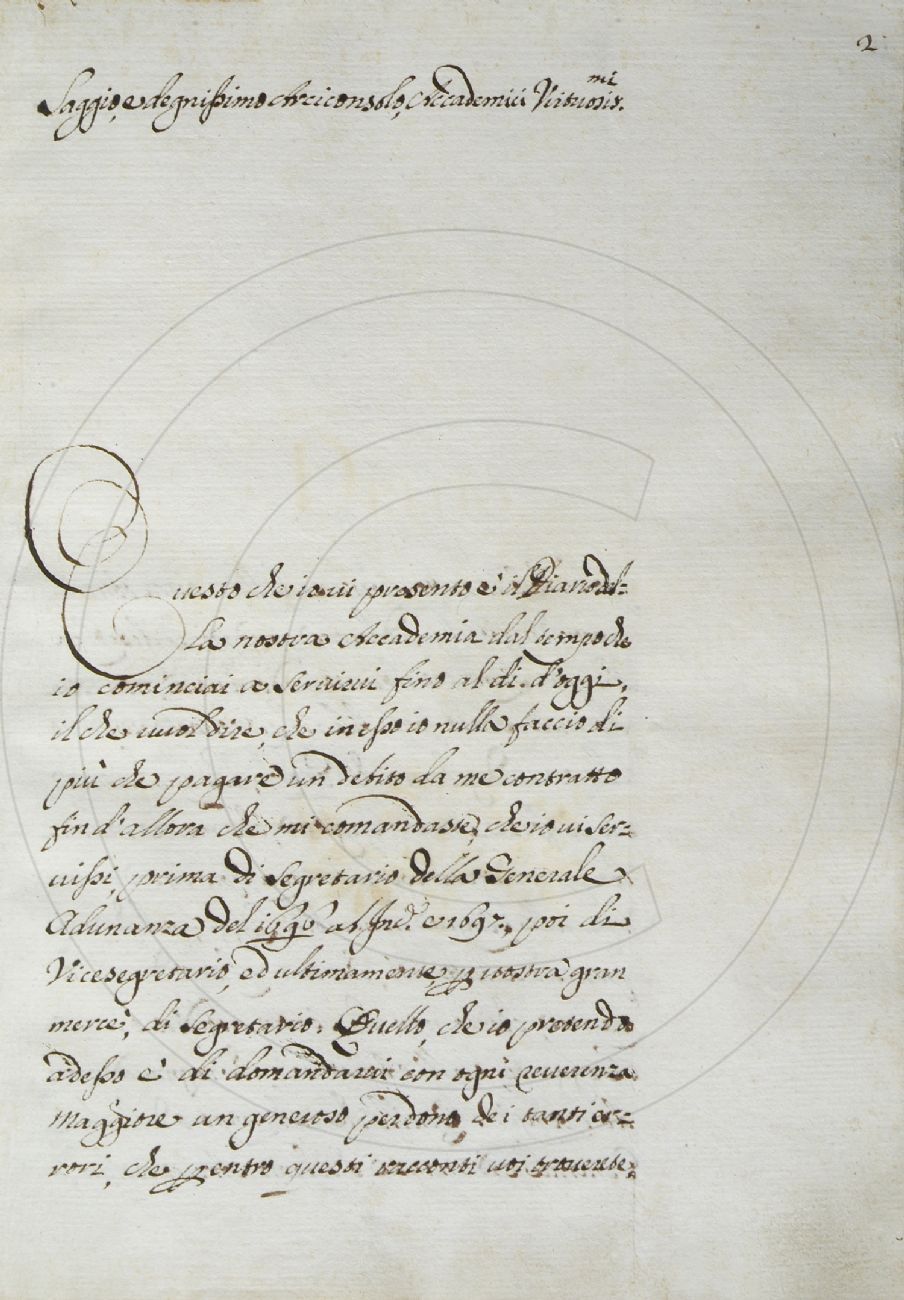 2
Saggio, e degnissimo Arciconsolo, Accademici Virtuosis.mi
Questo che io vi presento è il Diario del=
la nostra Accademia dal tempo che
io cominciai a servirvi fino al dì d'oggi,
il che vuol dire, che in esso io nulla faccio di
più che pagare un debito da me contratto
fin d'allora che mi comandaste, che io vi ser=
vissi, prima di Segretario della Generale
Adunanza del 1696 al Ind.e 1697., poi di
Vicesegretario, ed ultimamente, p vostra gran
mercè, di Segretario. Quello, che io pretendo
adesso è di domandarvi con ogni reverenza
maggiore un generoso perdono dei tanti er=
rori, che p entro questi racconti voi troverete;